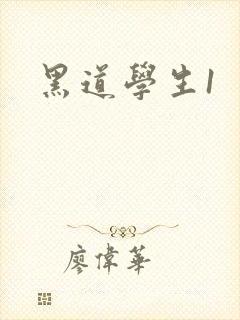 黑道學生1
廖偉華